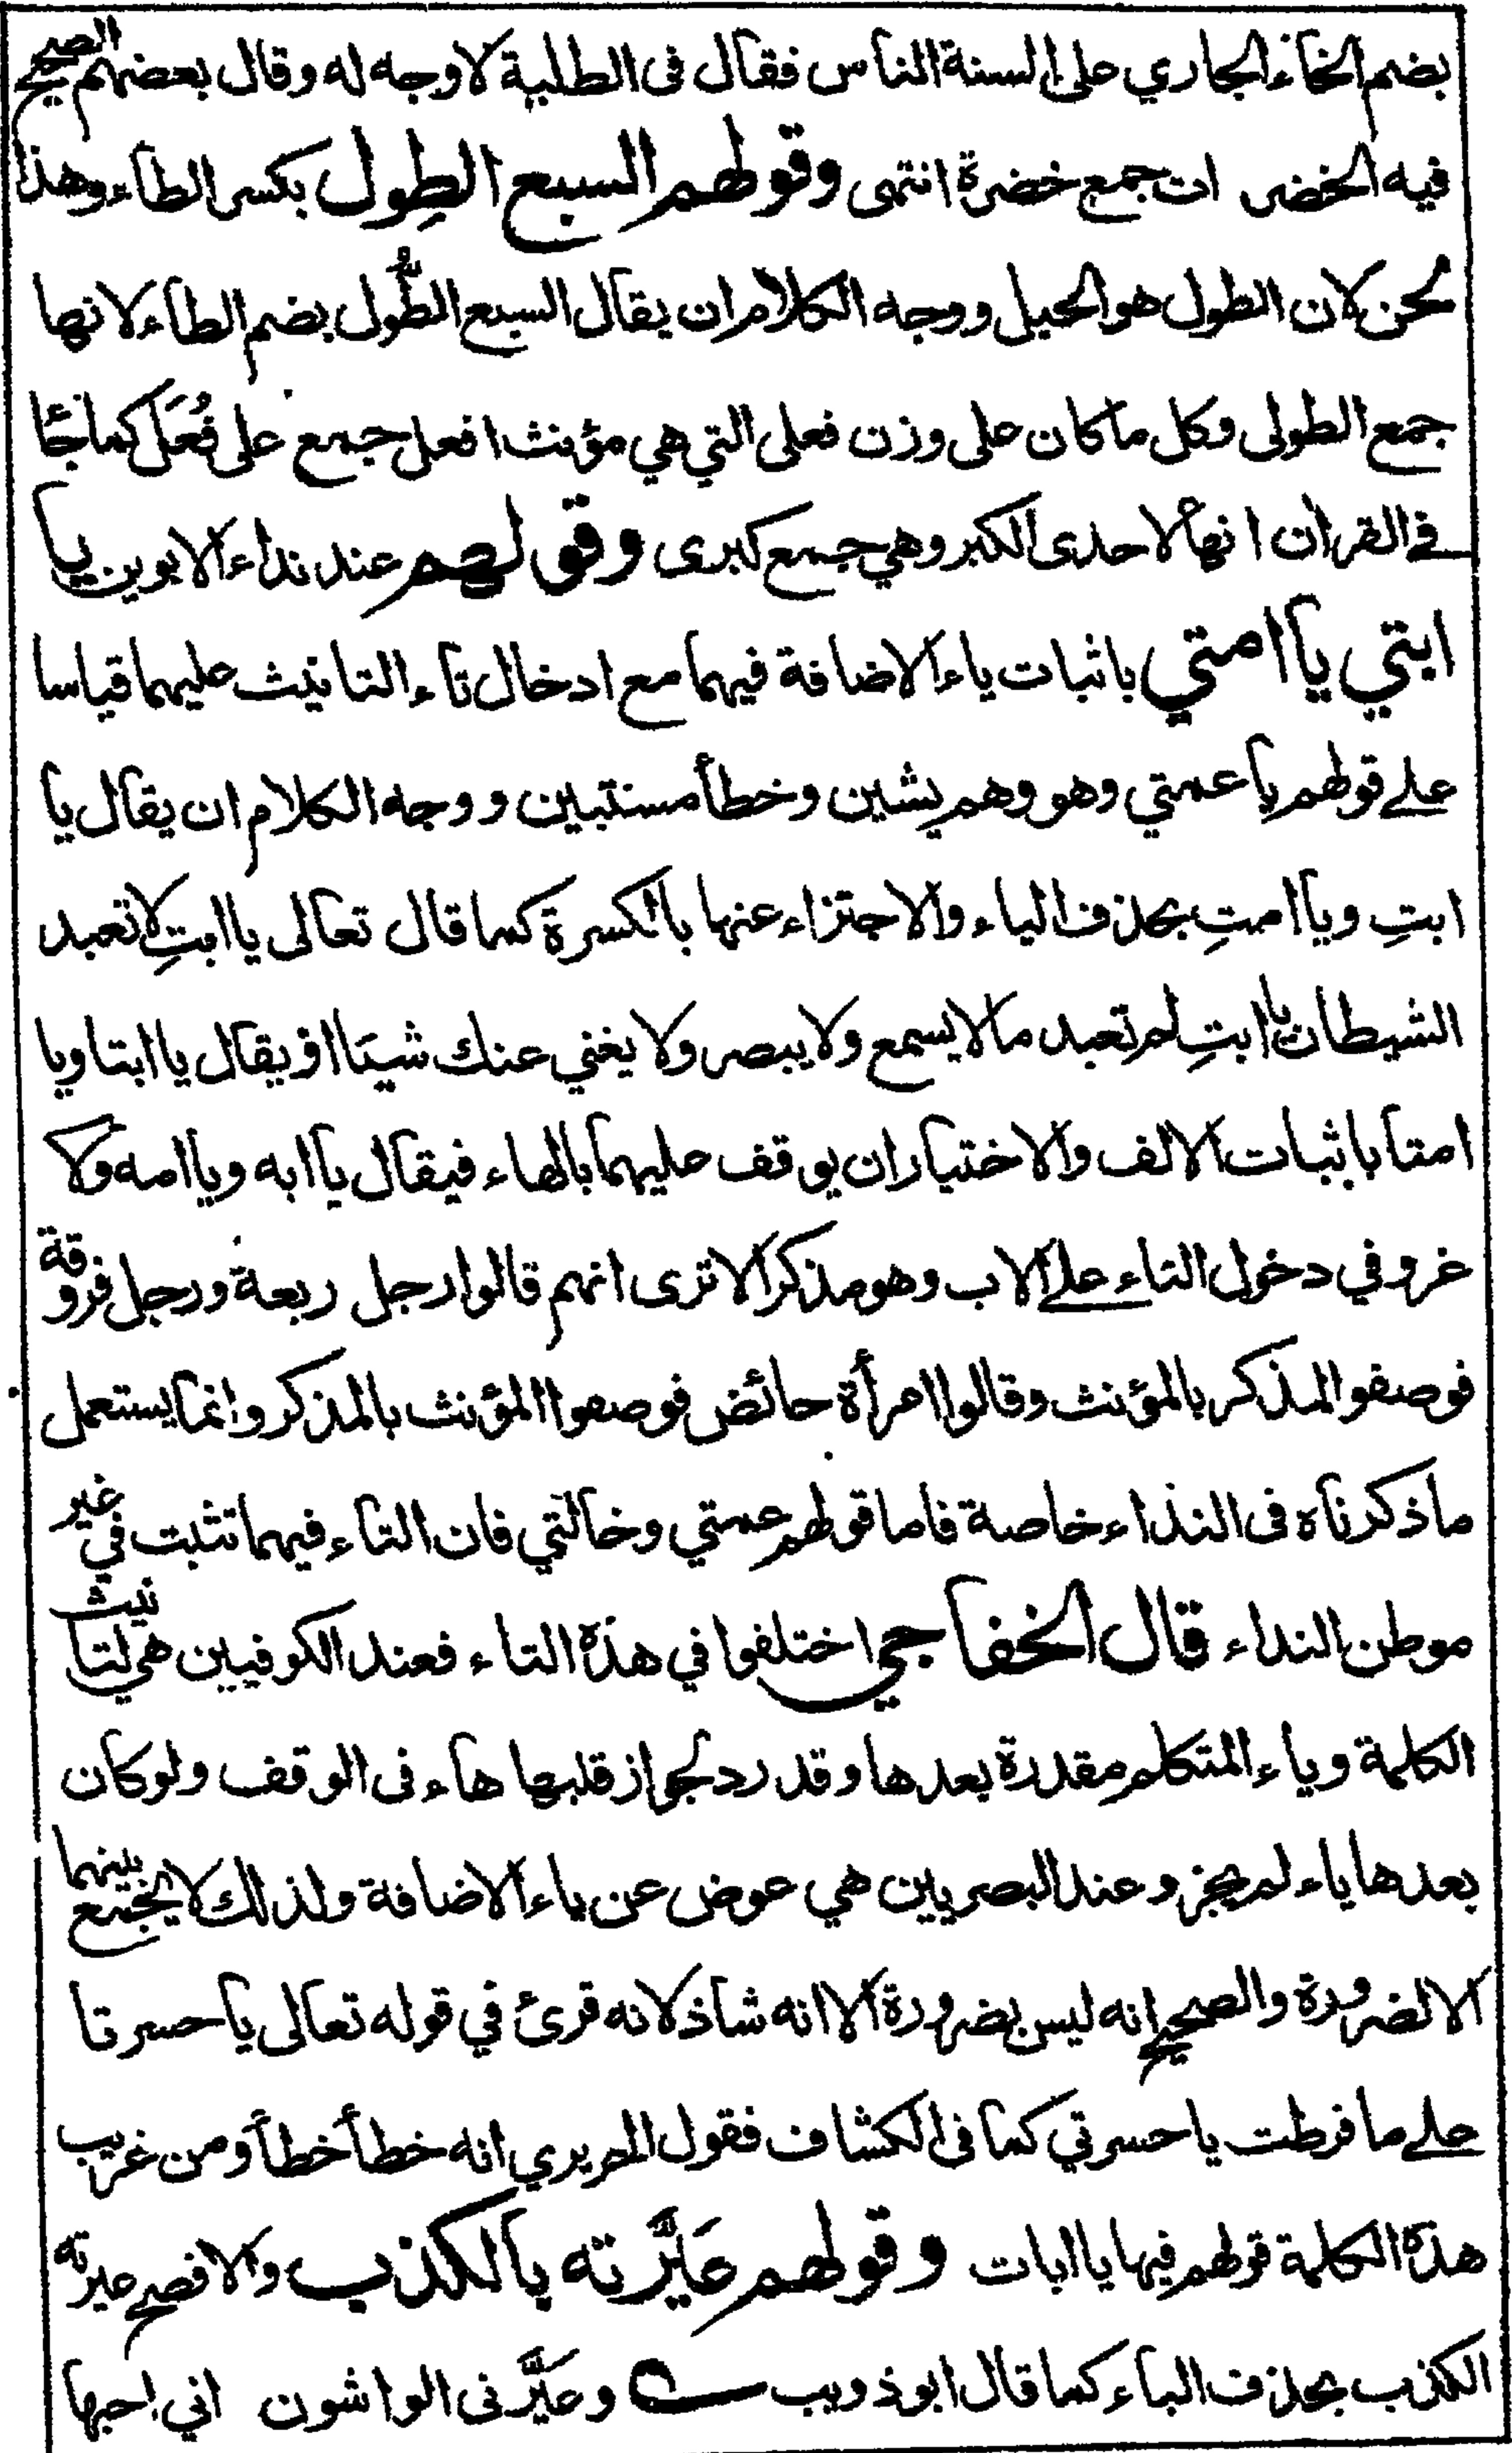 بضم الخاء الجاري على السنة الناس فقال فى الطلبة لا وجه له وقال بعضهم الصحيح
فيه الخضر ات جمع خضرة انتهى وقولهم السبع الطِول بكسر الطاء وهذا
لحن لان الطول هو الحبل ووجه الكلام ان يقال السبع الطُّول بضم الطاء لانها
جمع الطولى وكل ما كان على وزن فعلى التي هي مؤنث افعل جمع على فُعَل كما جاء
في القران انها لاحدى الكبر وهي جمع كبرى وقولهم عند نداء الابوين يا
ابتي يا امتي باثبات ياء الاضافة فيهما مع ادخال تاء التانيث عليهما قياسا
على قولهم يا عمتي وهو وهم يشين وخطأ مستبين ووجه الكلام ان يقال يا
ابتِ ويا امتِ بحذف الياء والاجتزاء عنها بالكسرة كما قال تعالى يا ابتِ لا تعبد
الشيطان يا ابتِ لم تعبد ما لا يسمع ولا يبصر ولا يغني عنك شيئا او يقال يا ابتا ويا
امتا باثبات الالف والاختيار ان يوقف عليهما بالهاء فيقال يا ابه ويا امه ولا
غرو في دخول التاء على الاب وهو مذكر الا ترى انهم قالوا رجل ربعة ورجل فروقة
فوصفوا المذكر بالمؤنث وقالوا امرأة حائض فوصفوا المؤنث بالمذكر وانما يستعمل
ما ذكرناه فى النداء خاصة فاما قولهم عمتي وخالتي فان التاء فيهما تثبت في غير
موطن النداء قال الخفاجي اختلفوا في هذه التاء فعند الكوفيين هي لتانيث
الكلمة وياء المتكلم مقدرة بعدها وقد رد لجواز قلبها هاء فى الوقف ولو كان
بعدها ياء لم يجز وعند البصريين هي عوض عن ياء الاضافة ولذلك لا يجتمع بينهما
الا لضرورة والصحيح انه ليس بضرورة الا انه شاذ لانه قرئ في قوله تعالى يا حسرتا
على ما فرطت يا حسرتي كما فى الكشاف فقول الحريري انه خطأ خطأ ومن غريب
هذه الكلمة قولهم فيها يا ابات وقولهم عَيَّرته بالكذب والافصح عيرته
الكذب بحذف الباء كما قال ابو ذويب وعَيَّرنى الواشون اني احبها